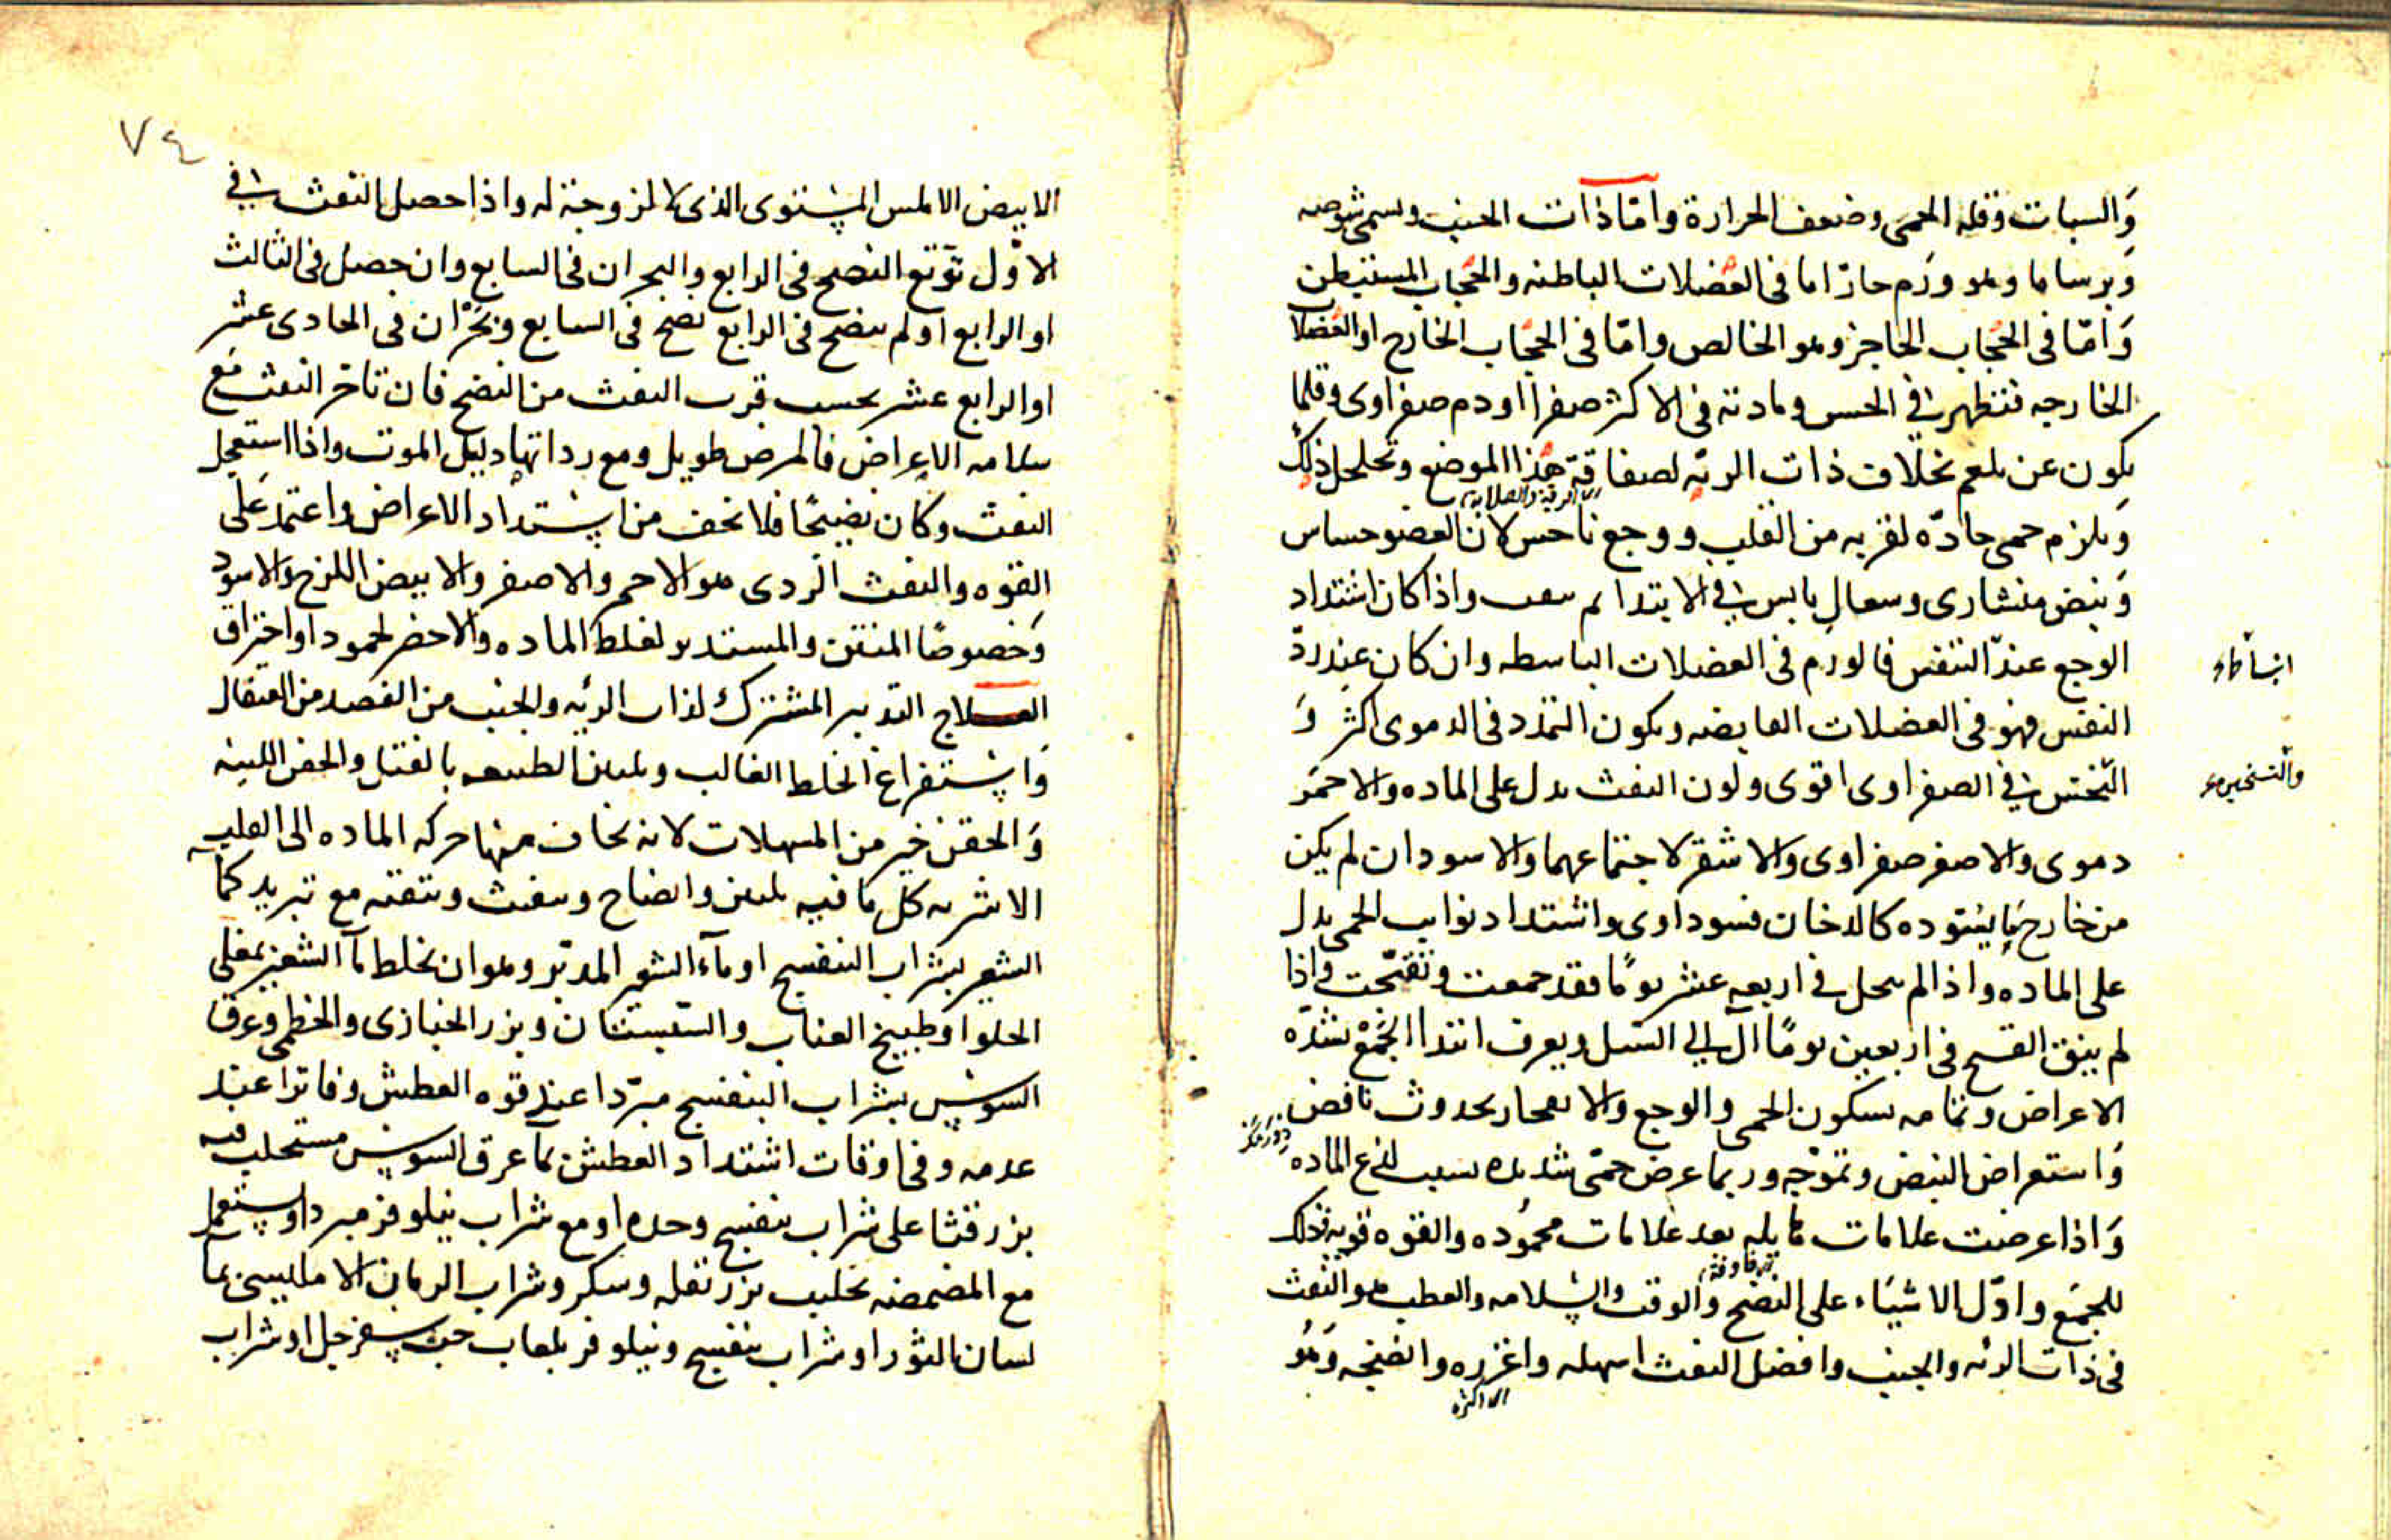 والسبات وقلة الحمى وضعف الحرارة واما ذات الجنب وسمى شوصه
وبرساما وهو ورم حار اما فى العضلات الباطنه والحجاب المستبطن
واما فى الحجاب الحاجز وهو الخالص واما فى الحجاب الخارج او العضلات
الخارجه فتظهر في الحس ومادته فى الاكثر صفرا او دم صفراوى وقلما
يكون عن بلغم بخلاف ذات الرئه لصفاقة هذا الموضع وتخلخل ذلك
ويلزم حمى حادّه لقربه من القلب ووجع ناخس لان العضو حساس
ونبض منشارى وسعال يابس في الابتدا ثم ينفث واذا كان اشتداد
الوجع عند التنفس فالورم فى العضلات الباسطه وان كان عند ردّ
النفس فهو فى العضلات القابضه ويكون التمدد فى الدموى اكثر و
النخس في الصفراوى اقوى ولون النفث يدل على الماده والاحمر
دموى والاصفر صفراوى والاشقر لاجتماعهما والاسود ان لم يكن
من خارج ما يسوده كالدخان فسوداوى واشتداد نوايب الحمى يدل
على الماده واذا لم يتحلل في اربعة عشر يوما فقد جمعت وتقيحت واذا
لم ينق القيح فى اربعين يوما آل الى السل ويعرف ابتدا الجمع بشدّه
الاعراض وتمامه بسكون الحمى والوجع والانفجار بحدوث نافض
واستعراض النبض وتموجه وربما عرض حمى شديده بسبب لذع الماده
واذا عرضت علامات هايله بعد علامات محموده والقوه قويه فذلك
للجمع واول الاشياء على النضح والوقت والسلامه والعطب هو النفث
فى ذات الرئه والجنب وافضل النفث اسهله واغزره وانضجه وهو
انبساطه
الابيض الاملس المستوى الذى لا لزوجة له واذا حصل النفث في
الاوّل توقع النضج فى الرابع والبحران فى السابع وان حصل فى الثالث
او الرابع او لم ينضج فى الرابع نضج فى السابع وبحران فى الحادى عشر
او الرابع عشر بحسب قرب النفث من النضج فان تاخر النفث مع
سلامه الاعراض فالمرض طويل ومع رداتها دليل الموت واذا استعجل
النفث وكان نضيجًا فلا تخف من اشتداد الاعراض واعتمد على
القوه والنفث الردى هو الاحمر والاصفر والابيض اللزج والاسود
وخصوصًا المنتن والمستدير لغلظ الماده والاخضر لجمود او احتراق
العلاج التدبير المشترك لذات الرئه والجنب من الفصد من القيفال
واستفراغ الخلط الغالب وتليين الطبيعه بالفتل والحقن اللينه
والحقن خير من المسهلات لانه يخاف منها حركه الماده الى القلب
الاشربه كل ما فيه تليين وانضاج وتنفيث وتنقيه مع تبريد كماء
الشعير بشراب البنفسج او ماء الشعير المدبّر وهو ان يخلط ماء الشعير بمغلى
الحلو او طبيخ العناب والسبستان وبزر الخبازى والخطمى وعرق
السوس بشراب البنفسج مبرّدا عند قوه العطش وفاترا عند
عدمه وفى اوقات اشتداد العطش بماء عرق السوس مستحلب فيه
بزر قثا على شراب بنفسج وحده او مع شراب نيلوفر مبردا ويستعمل
مع المضمضه بحليب بزر بقله وسكر وشراب الرمان الامليسى بماء
لسان الثور او شراب بنفسج ونيلوفر بلعاب حب سفرجل او شراب
٧٤